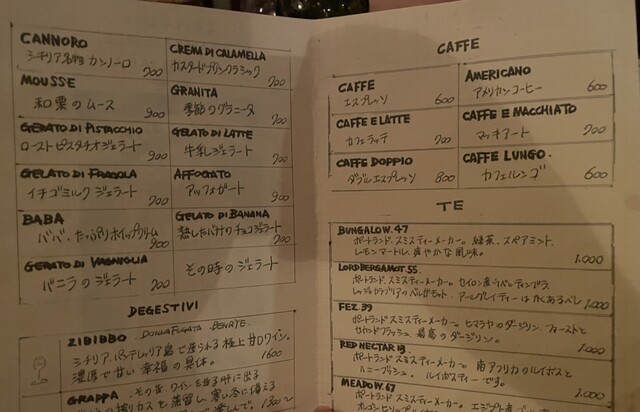 CANNORO
シチリア名物 カンノーロ 700
CREMA DI CALAMELLA
カスタードプリンクラシック 700
MOUSSE
和栗のムース 900
GRANITA
季節のグラニータ 700
GERATO DI PISTACCHIO
ローストピスタチオジェラート 900
GELATO DI LATTE
牛乳ジェラート 700
GELATO DI FRAGOLA
イチゴミルクジェラート 700
AFFOGATO
アッフォガート 900
BABA
ババ、たっぷりホイップクリーム 900
GELATO DI BANANA
熟したバナナのチョコジェラート 700
GERATO DI VAGNIGLIA
バニラのジェラート 700
その時のジェラート
DEGESTIVI
ZIBIBBO DONNAFUGATA BENRYE
シチリア、パンテレッリア島で造られる極上甘口ワイン。
濃厚で甘い幸福の具体。 1600
GRAPPA
CAFFE
CAFFE
エスプレッソ 600
AMERICANO
アメリカンコーヒー 600
CAFFE E LATTE
カフェラッテ 700
CAFFE E MACCHIATO
マッキアート 700
CAFFE DOPPIO
ダブルエスプレッソ 800
CAFFE LUNGO.
カフェルンゴ 600
TE
BUNGALOW.47
ポートランド、スミスティーメーカー。緑茶、スペアミント、
レモンマートル、爽やかな風味。 1.000
LORD BERGAMOT.55.
ポートランド、スミスティーメーカー。セイロン産
レッジョカラブリアのベルガモット、アールグレイティーはかくあるべし 1.000
FEZ.39
ポートランドスミスティーメーカー。ヒマラヤのダージリン、ファーストと
セカンドフラッシュ、最高のダージリン。 1.000
RED NECTAR.13.
ポートランド スミスティーメーカー。南アフリカのルイボスと
ハニーブッシュ。ルイボスティーです。 1.000
MEADOW.67
ポートランド、スミスティーメーカー。エジプト産